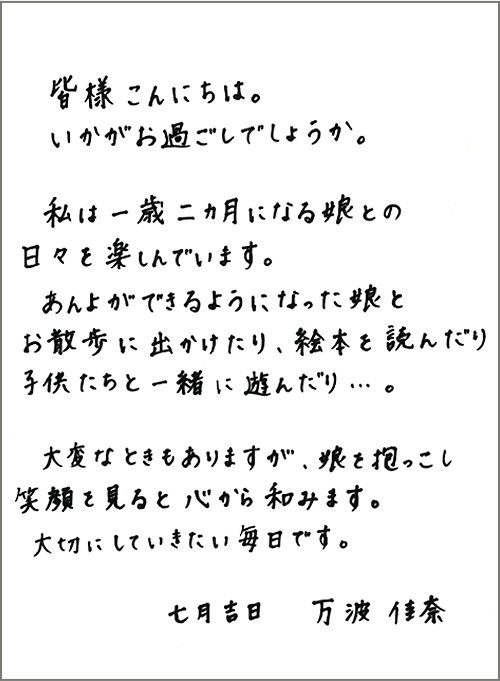 皆様こんにちは。
いかがお過ごしでしょうか。
私は一歳二カ月になる娘との
日々を楽しんでいます。
あんよができるようになった娘と
お散歩に出かけたり、絵本を読んだり
子供たちと一緒に遊んだり…。
大変なときもありますが、娘を抱っこし
笑顔を見ると心から和みます。
大切にしていきたい毎日です。
七月吉日　万波佳奈